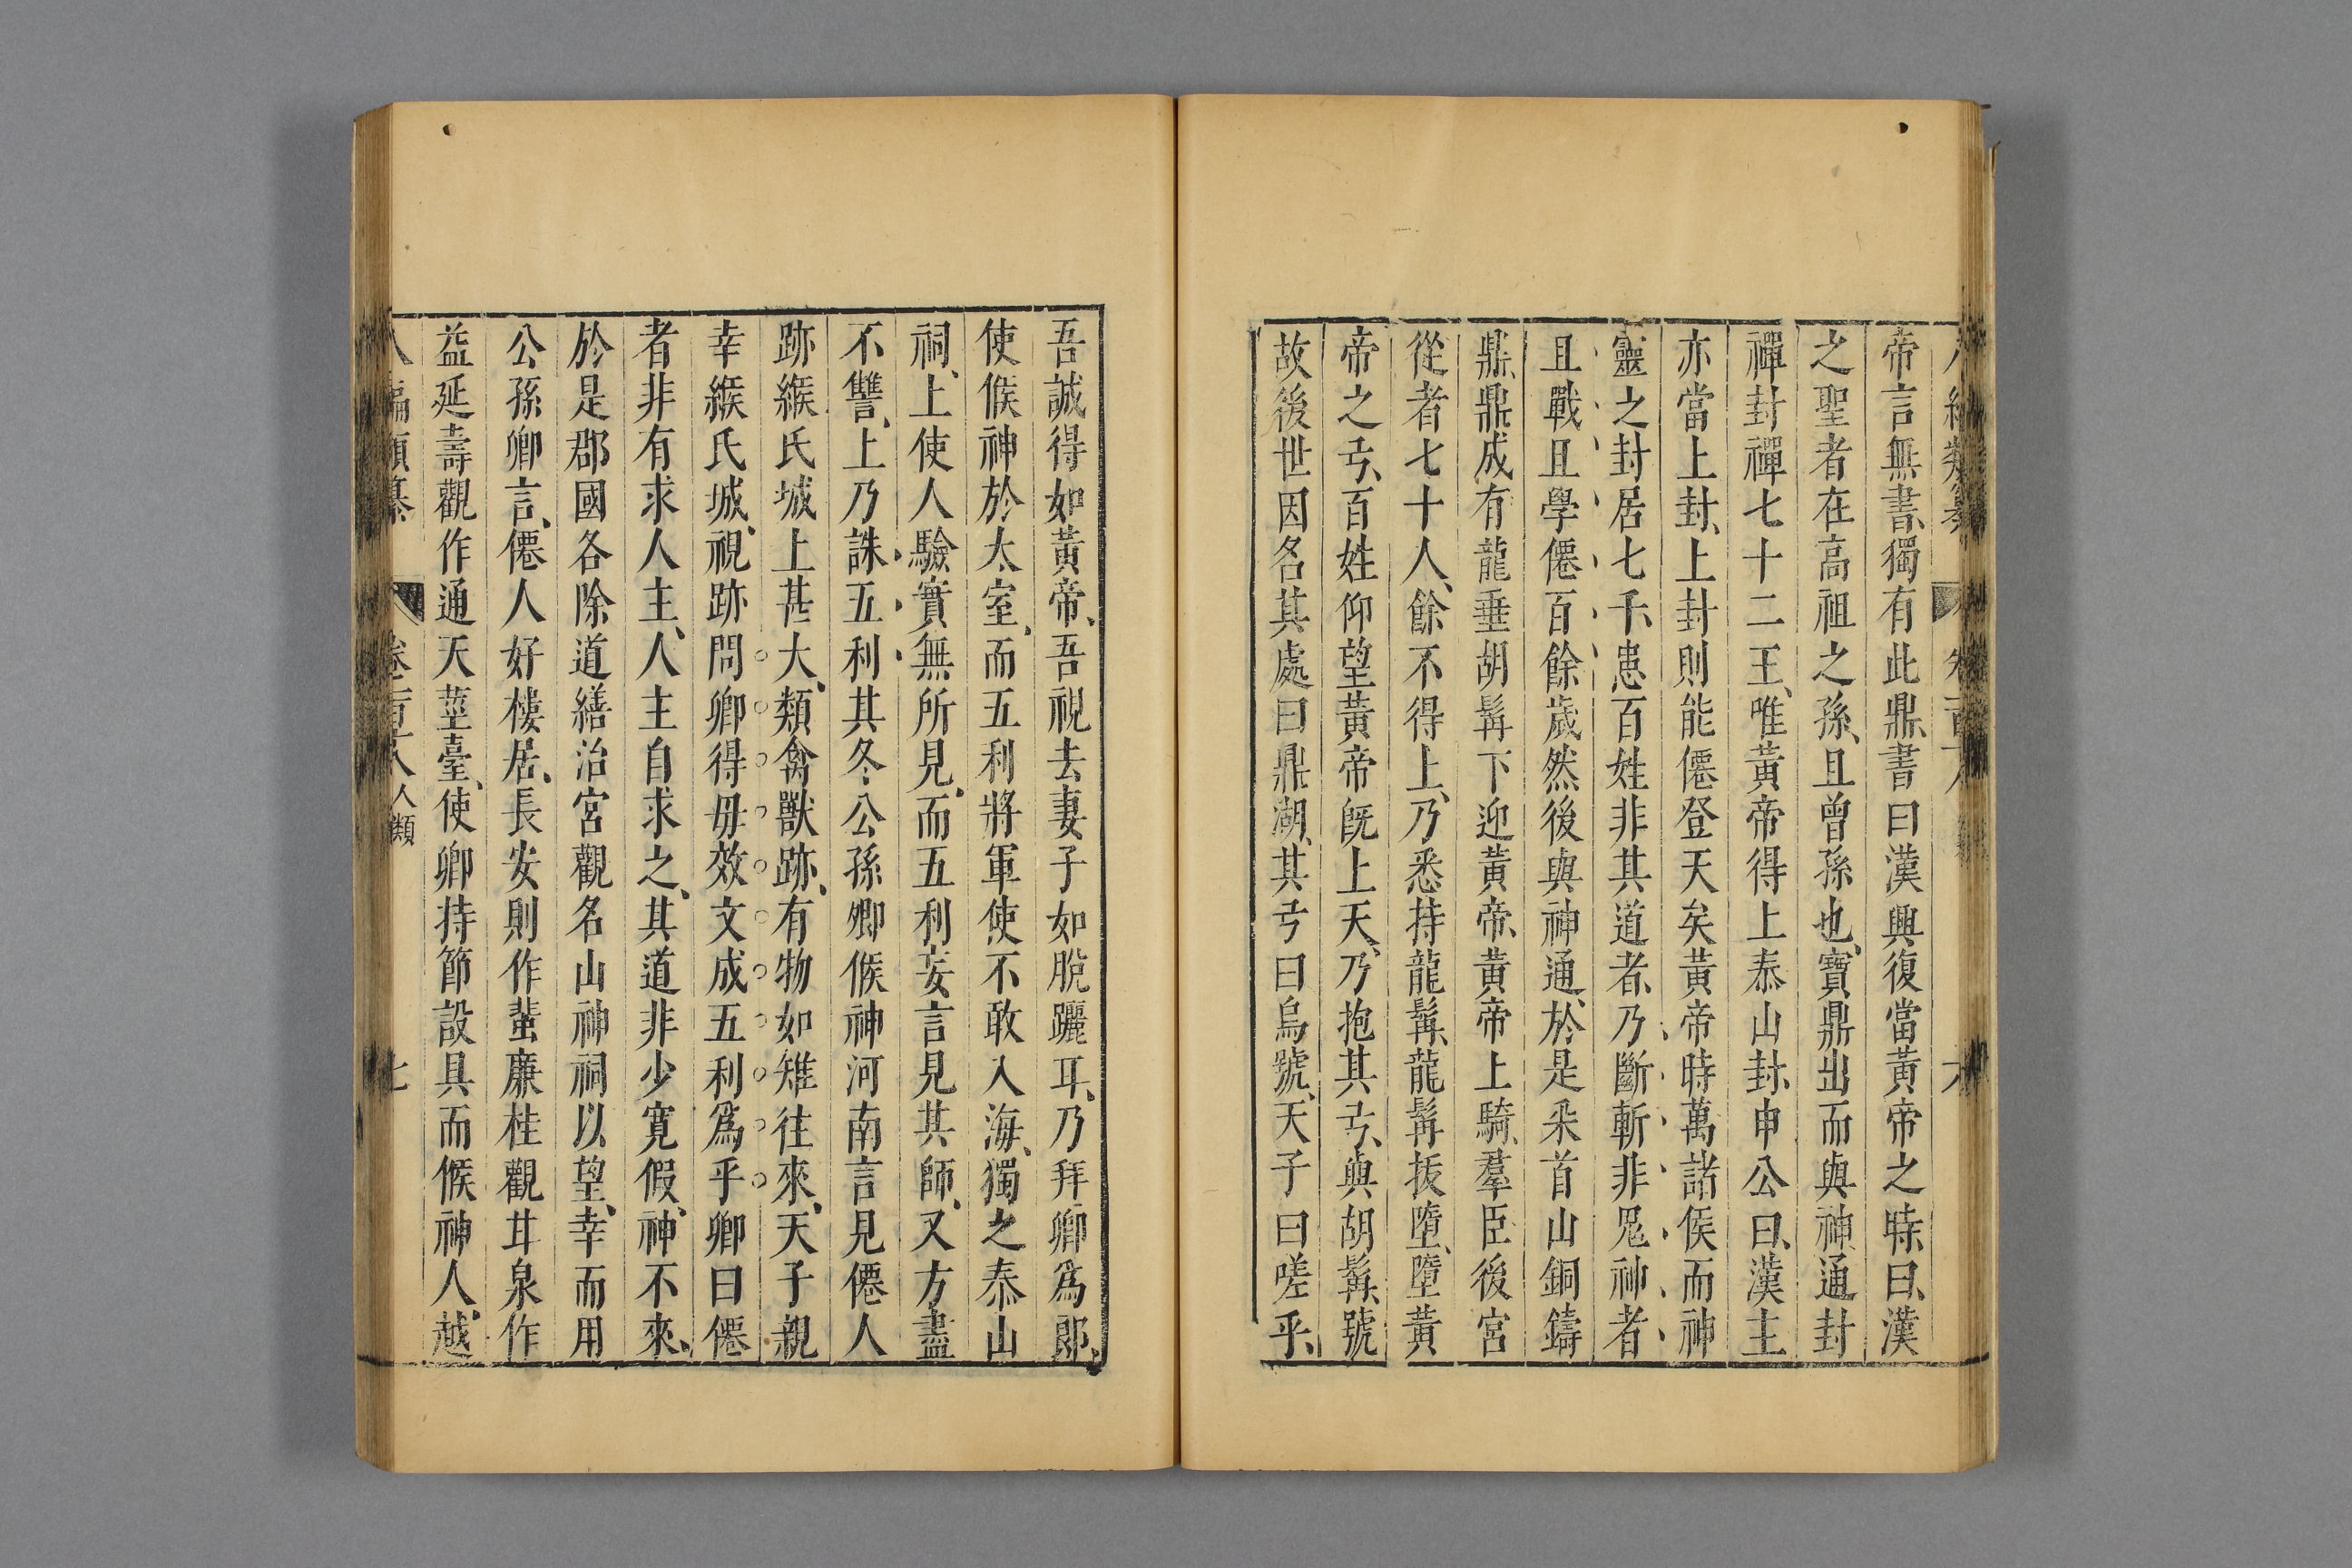 帝言無書、獨有此鼎書曰漢興復當黃帝之時、曰、漢
之聖者在高祖之孫、且曾孫也、寶鼎出而與神通封
禪封禪七十二王、唯黃帝得上泰山封、申公曰、漢主
亦當上封、上封則能僊登天矣黃帝時萬諸侯而神
靈之封居七千、患百姓非其道者、乃斷斬非鬼神者、
且戰且學僊百餘歲然後與神通、於是采首山銅鑄
鼎、鼎成有龍垂胡髯下迎黃帝、黃帝上騎、羣臣後宮
從者七十人、餘不得上、乃悉持龍髯、龍髯拔墮、墮黃
帝之弓、百姓仰望黃帝旣上天、乃抱其弓、與胡髯、號
故後世因名其處曰鼎湖、其弓曰烏號、天子曰嗟乎、
吾誠得如黃帝、吾視去妻子如脫躧耳、乃拜卿爲郎、
使候神於太室、而五利將軍使不敢入海、獨之泰山
祠、上使人驗實無所見、而五利妄言見其師、又方盡
不讐、上乃誅五利其冬公孫卿候神河南言見僊人
跡緱氏城上甚大、類禽獸跡、有物如雉往來、天子親
幸緱氏城、視跡問卿得毋效文成五利爲乎卿曰僊
者非有求人主、人主自求之、其道非少寬假、神不來、
於是郡國各除道繕治宮觀名山神祠以望、幸而用
公孫卿言、僊人好樓居、長安則作蜚廉桂觀甘泉作
益延壽觀作通天莖臺、使卿持節設具而候神人、越
八編類纂 卷之一百十八 人類 七